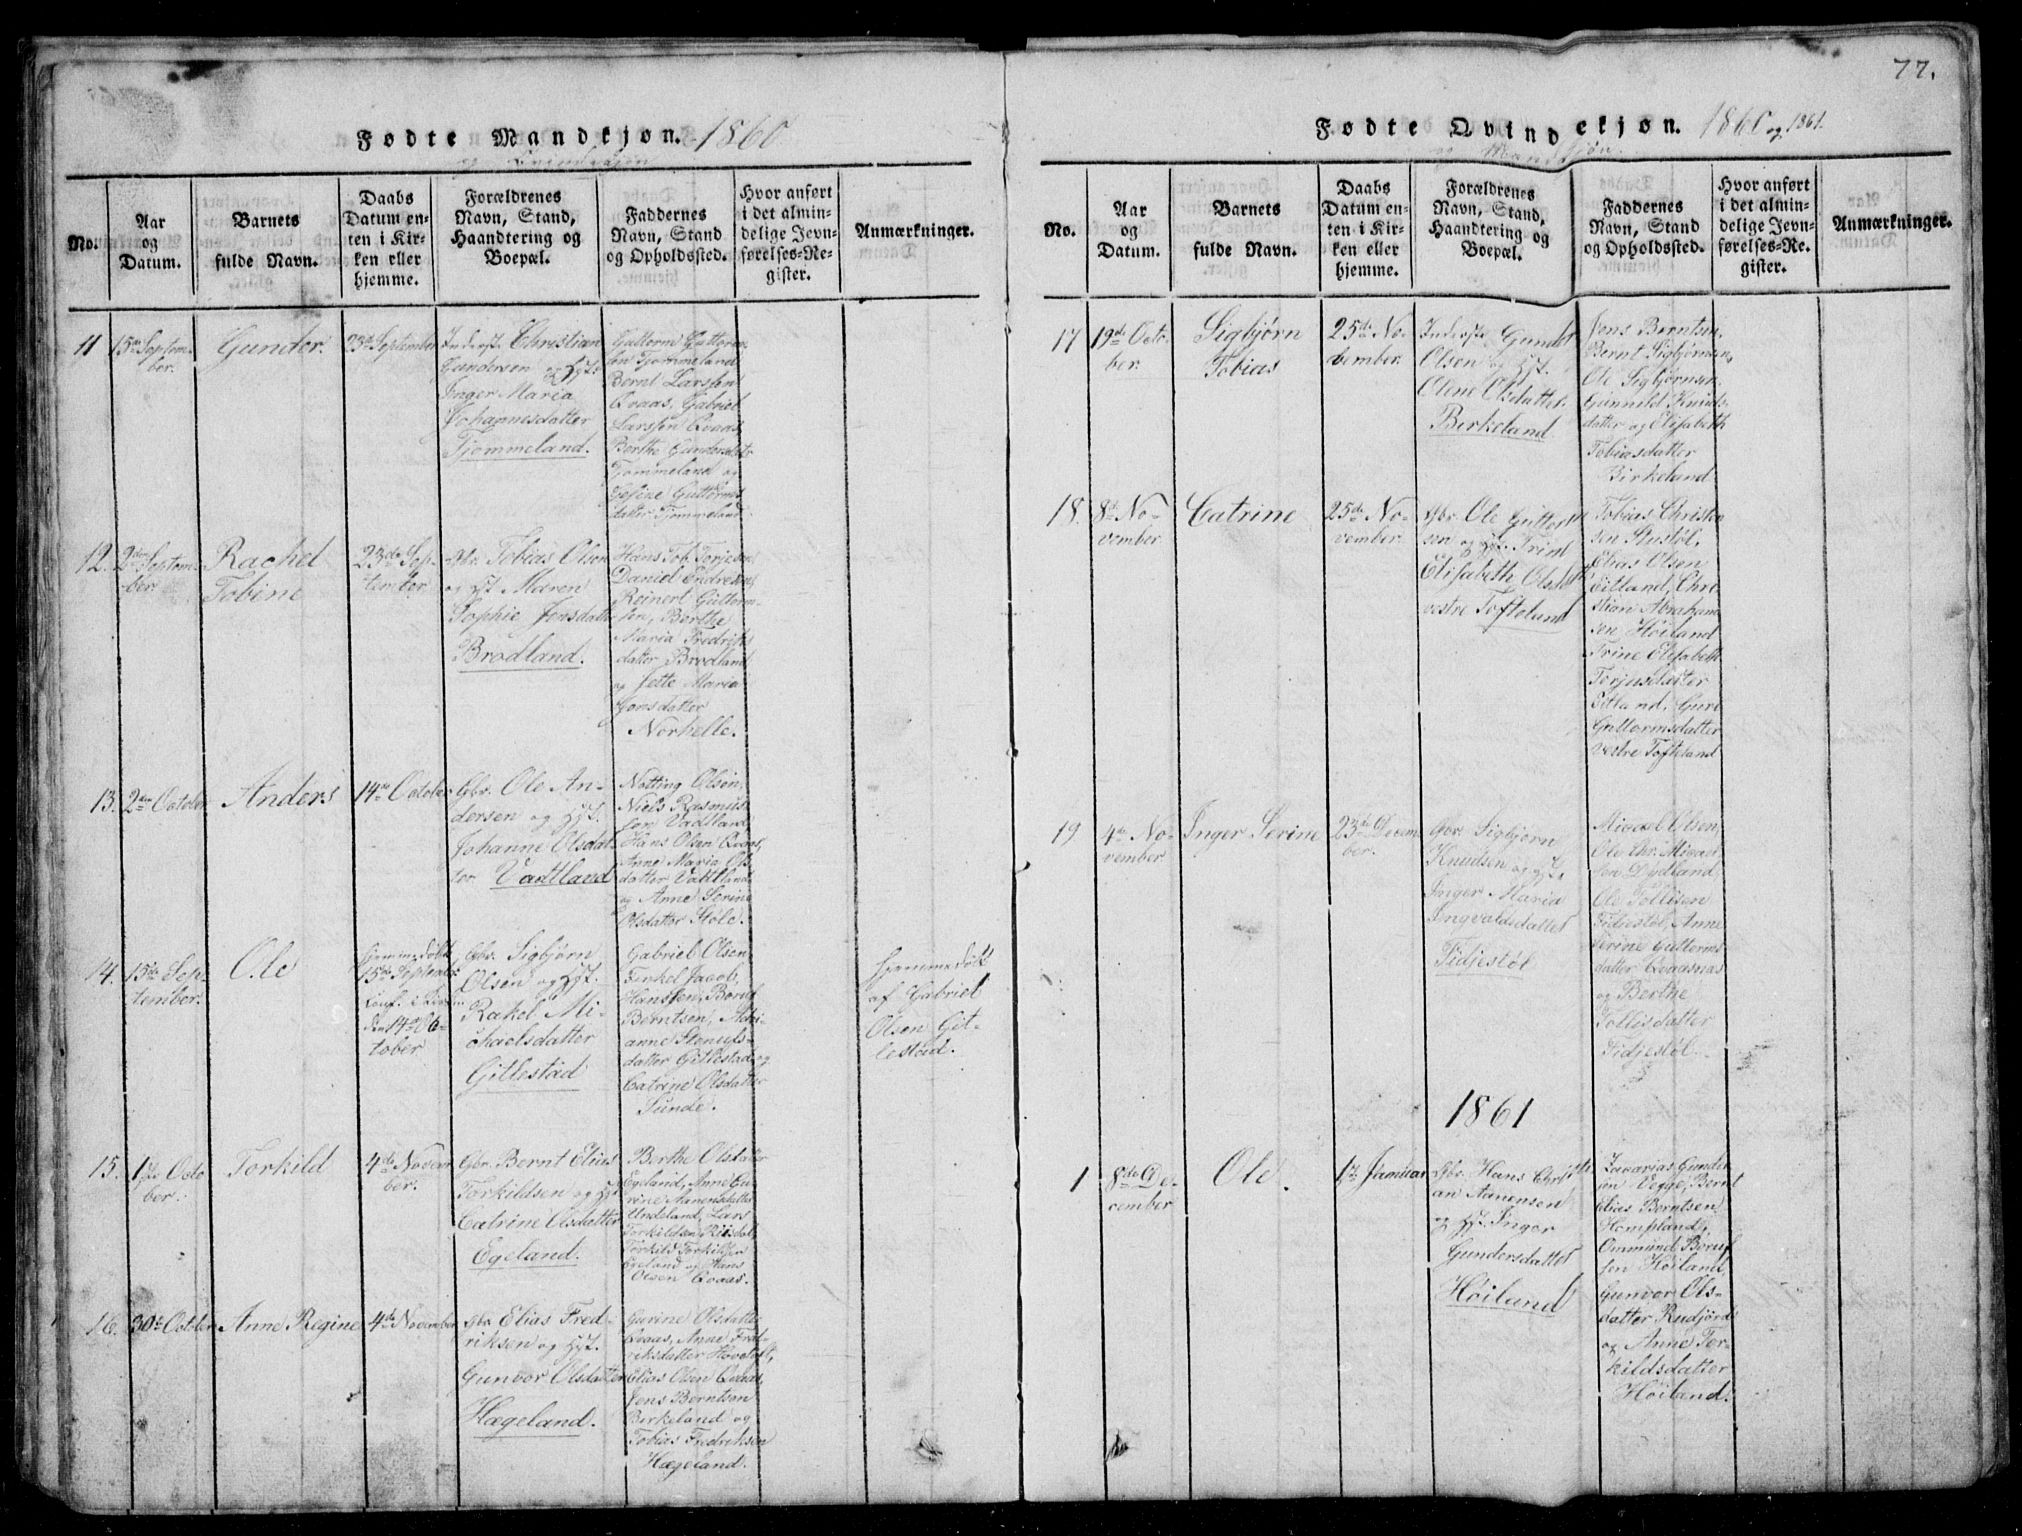 77.
Fødte Mandkjøn. 1860
og Qvindekjøn
No.
Aar
og
Datum.
Barnets
fulde Navn.
Daabs
Datum en-
ten i Kir-
ken eller
hjemme.
Forældrenes
Navn, Stand,
Haandtering og
Boepæl.
Faddernes
Navn, Stand
og Opholdssted.
Hvor anført
i det almin-
delige Jevn-
førelses-Re-
gister.
Anmærkninger.
11
15de Septem-
ber.
Gunder.
23de September
Inderst. Christian
Gundersen og Hst.
Inger Maria
Johannesdatter
Tjommeland.
Guttorm Guttorm-
sen Tjommeland
Bernt Larssen
Qvaas, Gabriel
Larssen Qvaas
Berthe Gundersdatr
Tjommeland og
Gesine Guttorms-
datter Tjommeland.
12.
2den Septem-
ber.
Rachel
Tobine
23de Sep-
tember
Gbr. Tobias Olsen
og Hst Maren
Sophie Jonsdatter
Brødland.
Hans Tob. Terjesen
Daniel Endresen,
Reinert Guttorm-
sen, Berthe
Maria Fredriks
datter Brødland
og Jette Maria
Jonsdatter
Norhelle.
13.
2den October
Anders
14de October
Gbr. Ole An-
dersen og Hst.
Johanne Olsdat-
ter Vadtland
Notting Olsen,
Niels Rasmus-
sen Vadtland
Hans Olsen Qvaas,
Anne Maria Ols-
datter Vadtland
og Anne Serine
Olsdatter Støle.
14.
15de Sep-
tember.
Ole
Hjemmedøbt
15de September
Conf. i Kirken
den 14de Oc-
tober
Gbr. Sigbjørn
Olsen og Hst.
Rakel Mi-
chaelsdatter
Gitlestad
Gabriel Olsen
Terkel Jacob,
Hanssen, Beruf
Berntsen, Adri-
anne Stenufs-
datter Gitlestad og
Catrine Olsdatter
Sunde.
Hjemmedøbt
af Gabriel
Olsen Git-
lestad.
15.
1ste Octo
ber.
Torkild
4de Novem
ber.
Gbr. Bernt Elias
Torkildsen og Hst
Catrine Olsdatter
Egeland.
Berthe Olsdatter
Egeland, Anne Gu-
rine Aanensdatter
Undeland, Lars
Torkildsen Riisdal,
Torkild Torkildsen
Egeland og Hans
Olsen Qvaas.
16.
30te October
Anne Regine
4de November
Gbr Elias Fred-
riksen og Hst.
Gunvor Olsdatter
Hægeland.
Gurine Olsdatter
Qvaas, Anne Fred-
riksdatter Hovetoft,
Elias Olsen Qvaas,
Jens Berntsen
Birkeland og
Tobias Fredriksen
Hægeland.
Fødte Qvindekjøn. 1860 og 1861.
og Mandkjøn.
No.
Aar
og
Datum.
Barnets
fulde Navn.
Daabs
Datum en-
ten i Kir-
ken eller
hjemme.
Forældrenes
Navn, Stand,
Haandtering og
Boepæl.
Faddernes
Navn, Stand
og Opholdssted.
Hvor anført
i det almin-
delige Jevn-
førelses-Re-
gister.
Anmærkninger.
17
19de Octo-
ber.
Sigbjørn
Tobias
25de No-
vember.
Inderste Gundr
Olsen og Hst.
Olene Olsdatter.
Birkeland
Jens Berntsen,
Bernt Sigbjørnsen,
Ole Sigbjørnsen.
Gunnild Knuds-
datter og Elisabeth
Tobiasdatter
Birkeland
18.
8de No-
vember
Catrine
25de No-
vember.
Gbr. Ole Guttorm
sen og Hst. Trine
Elisabeth Olsdttr
vestre Tofteland
Tobias Christen
sen Stustøl,
Elias Olsen
Eitland, Chri-
stian Abraham-
sen Høiland
Trine Elisabeth
Terjusdatter
Eitland, Guri
Guttormsdatter
vestre Tofteland
19
4de No-
vember
Inger Serine
23de Decem
ber.
Gbr. Sigbjørn
Knudsen og Hst.
Inger Maria
Ingvaldsdatter
Fidjestøl
Micael Olsen,
Ole Chr. Micael-
sen Dydland
Ole Tollisen
Fidjestøl, Anne
Serine Guttorms
datter Qvaasnas
og Berthe
Tollisdatter
Fidjestøl.
1861
1
8de De-
cember
Ole.
1ste Januar
Gbr. Hans Christi
an Aanensen
og Hst. Inger
Gundersdatter
Høiland
Zacarias Gunder
sen Vegge, Bernt
Elias Berntsen
Hompland,
Ommund Beruf
sen Høiland,
Gunvor Ols-
datter Rudjord
og Anne Ter-
kildsdatter
Høiland.